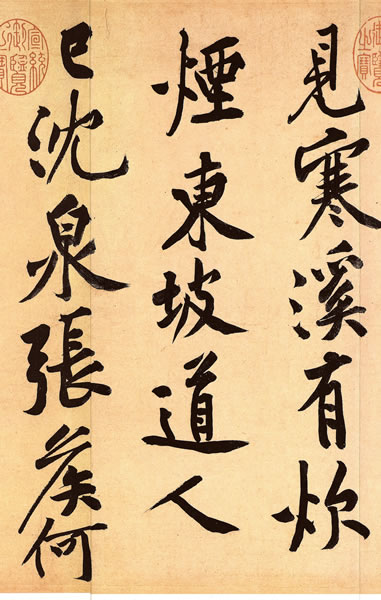 見寒溪有炊
煙東坡道人
已沈泉張侯何